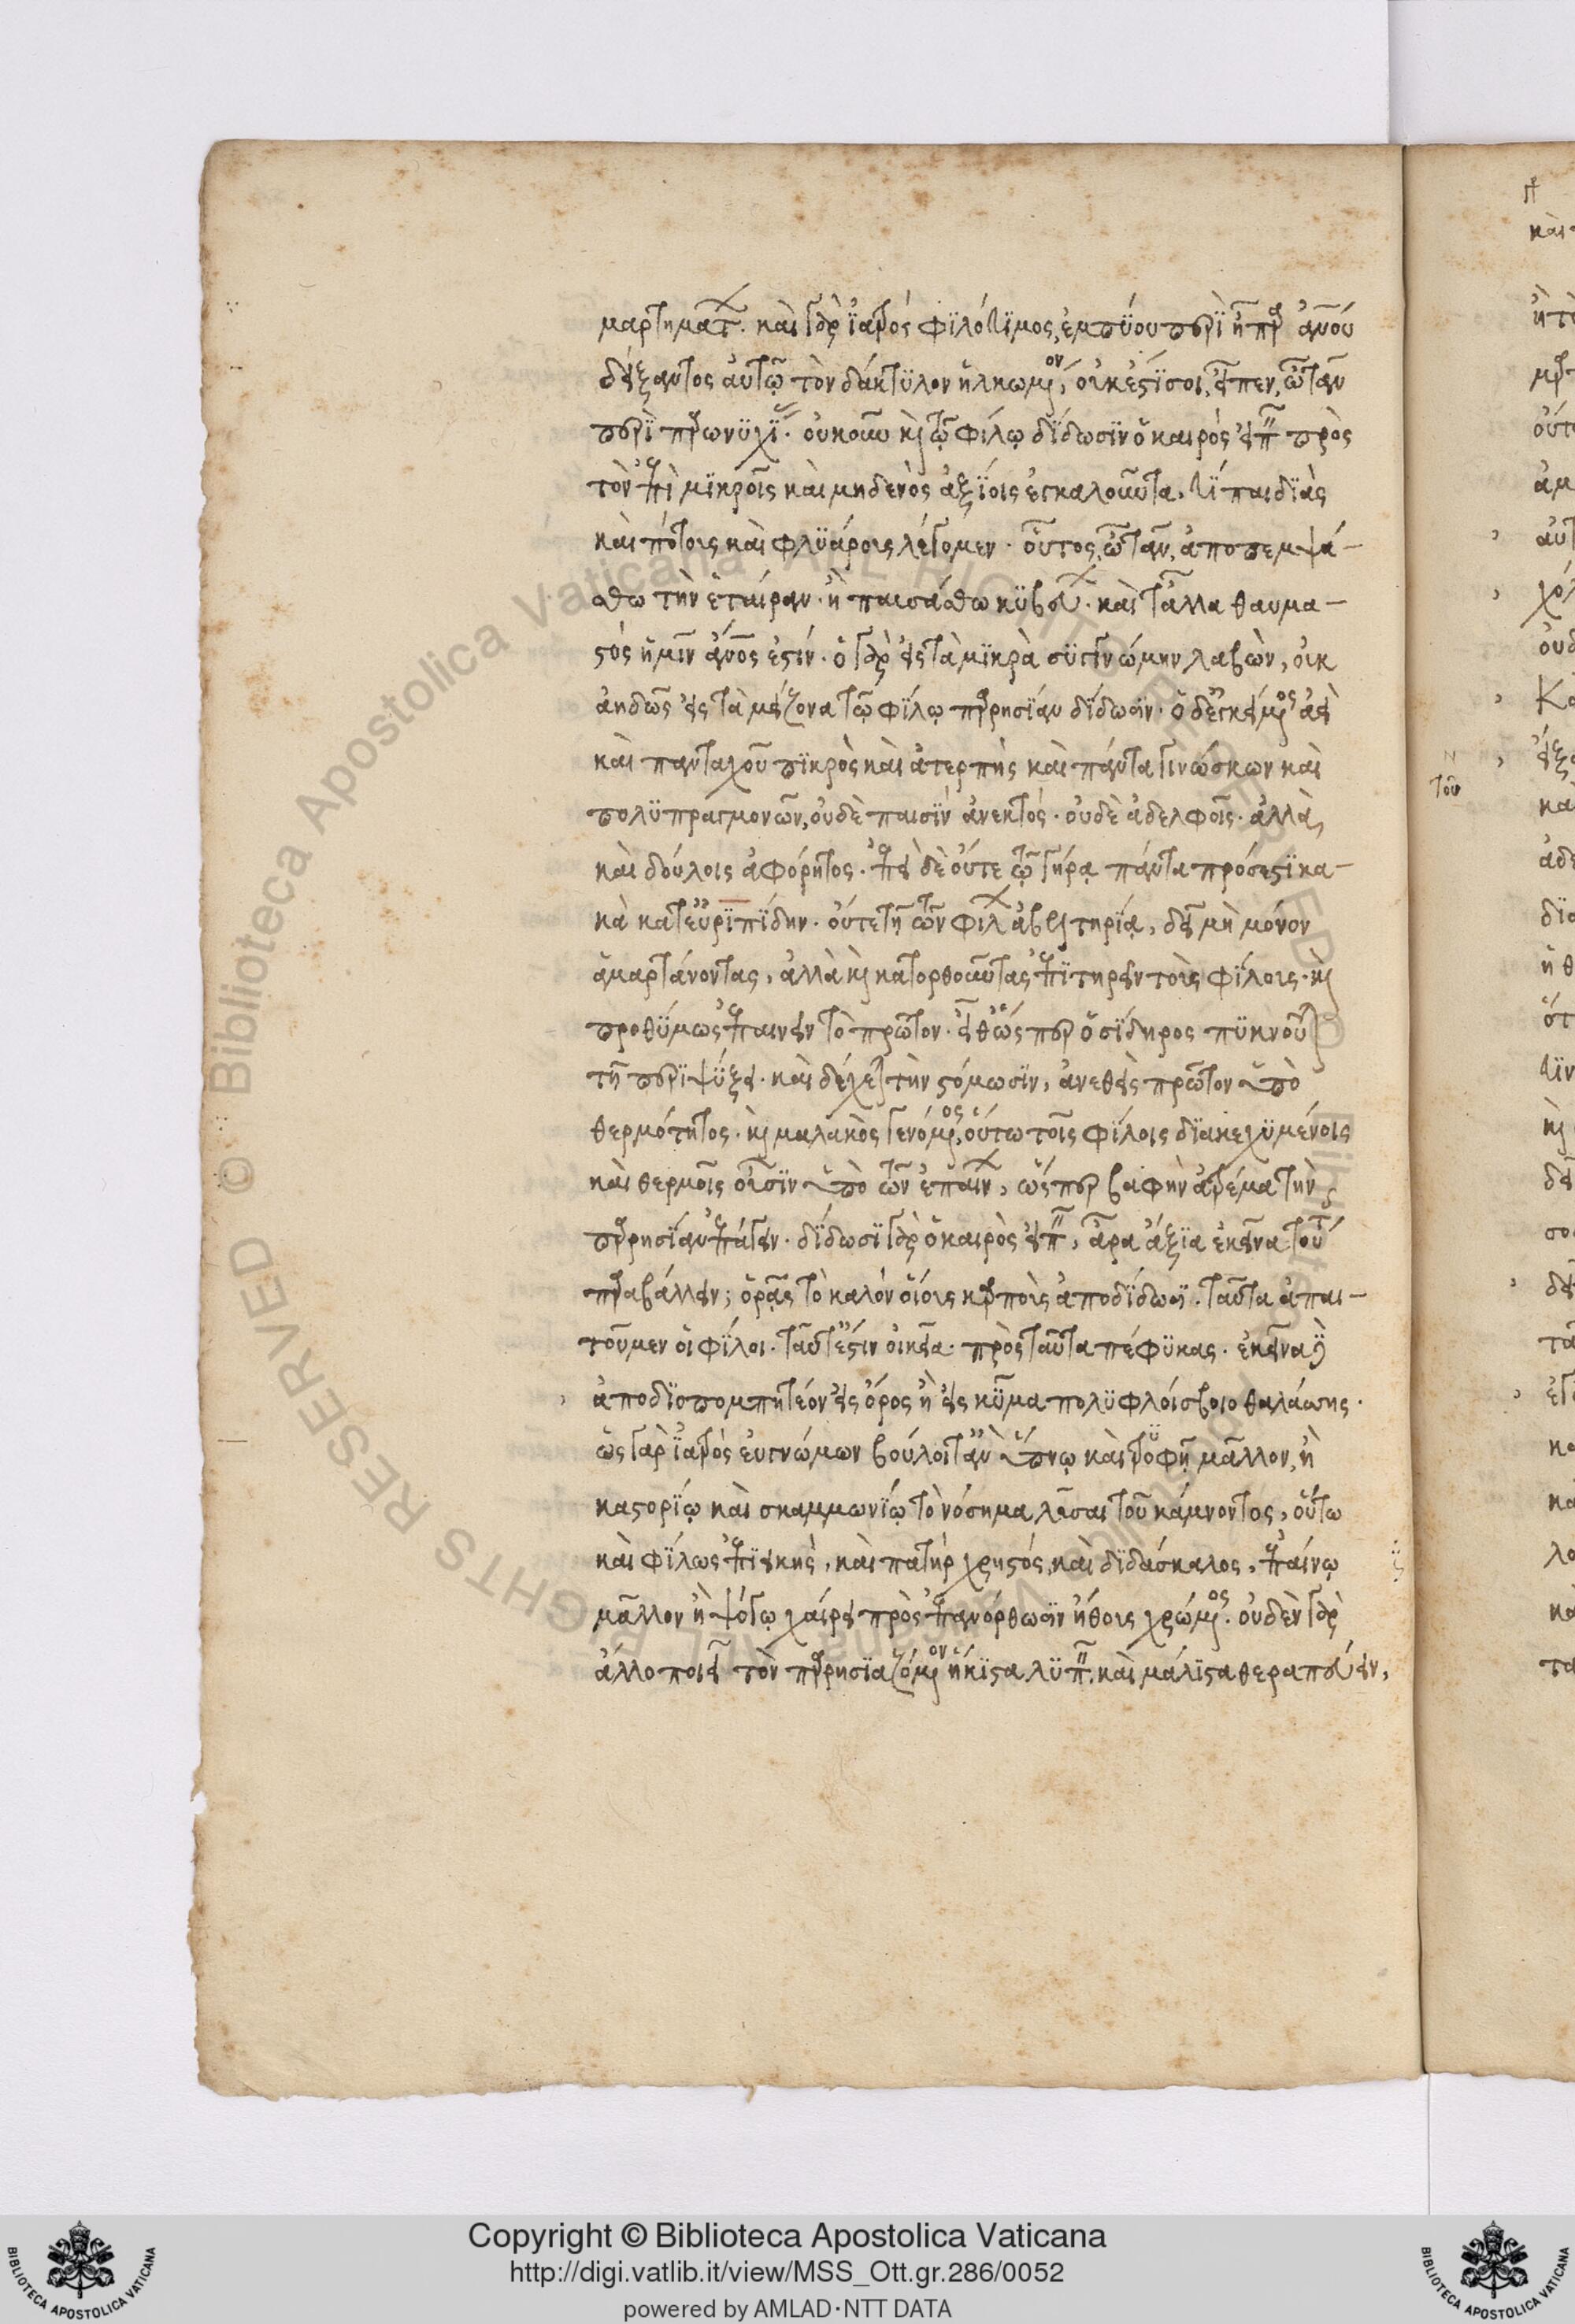 μαρτημάτων. καὶ γὰρ ἰατρὸς φιλότιμος, ἐμπύου περὶ ἧπαρ ἀνου
δείξαντος αὐτῷ τὸν δάκτυλον ἡλκωμένον, οὐκ ἔστι σοι, εἶπεν, ὦ τὰν
περὶ παρωνυχίας. οὐκοῦν καὶ τῷ φίλῳ δίδωσιν ὁ καιρὸς εἰπεῖν πρὸς
τὸν ἐπὶ μικροῖς καὶ μηδενὸς ἀξίοις ἐγκαλοῦντα. τί παιδιὰς
καὶ πότοις καὶ φλυάροις λέγομεν. οὗτος, ὦ τὰν, ἀποπεμψά-
σθω τὴν ἑταίραν. ἢ παυσάσθω κυβεύων. καὶ τἄλλα θαυμα-
στὸς ἡμῖν ἄνος ἐστίν. ὁ γὰρ εἰς τὰ μικρὰ συγγνώμην λαβὼν, οὐκ
ἀηδῶς εἰς τὰ μείζονα τῷ φίλῳ παρρησίαν δίδωσιν. ὁ δὲ ἐγκείμενος ἀεὶ
καὶ πανταχοῦ πικρὸς καὶ ἀτερπὴς καὶ πάντα γινώσκων καὶ
πολυπραγμονῶν, οὐδὲ παισὶν ἀνεκτός. οὐδὲ ἀδελφοῖς. ἀλλὰ
καὶ δούλοις ἀφόρητος. ἐπεὶ δὲ οὔτε τῷ γήρᾳ πάντα πρόσεστι κα-
κὰ κατ' εὐριπίδην. οὔτε τῇ τῶν φίλων ἀβελτηρίᾳ, δεῖ μὴ μόνον
ἁμαρτάνοντας, ἀλλὰ καὶ κατορθοῦντας ἐπιτηρεῖν τοὺς φίλους. καὶ
προθύμως ἐπαινεῖν τὸ πρῶτον. εἶθ' ὥσπερ ὁ σίδηρος πυκνοῦται
τῇ περιψύξει. καὶ δέχεται τὴν στόμωσιν, ἀνεθεὶς πρῶτον ὑπὸ
θερμότητος. καὶ μαλακὸς γενόμενος, οὕτω τοῖς φίλοις διακεχυμένοις
καὶ θερμοῖς οὖσιν ὑπὸ τῶν ἐπαίνων, ὥσπερ βαφὴν ἀτρέμα τὴν
παρρησίαν ἐπάγειν. δίδωσι γὰρ ὁ καιρὸς εἰπεῖν, ἆρα ἄξια ἐκεῖνα τούτοις
παραβάλλειν; ὁρᾷς τὸ καλὸν οἵους καρποὺς ἀποδίδωσι. ταῦτα ἀπαι-
τοῦμεν οἱ φίλοι. ταῦτ' ἔστιν οἰκεῖα. πρὸς ταῦτα πέφυκας. ἐκεῖνα δὲ
ἀποδιοπομπητέον εἰς ὄρος ἢ εἰς κῦμα πολυφλοίσβοιο θαλάσσης.
ὡς γὰρ ἰατρὸς εὐγνώμων βούλοιτ' ἂν ὕπνῳ καὶ τροφῇ μᾶλλον, ἢ
καστορίῳ καὶ σκαμμωνίῳ τὸ νόσημα λῦσαι τοῦ κάμνοντος, οὕτω
καὶ φίλος ἐπιεικὴς, καὶ πατὴρ χρηστός, καὶ διδάσκαλος, ἐπαίνῳ
μᾶλλον ἢ ψόγῳ χαίρει πρὸς ἐπανόρθωσιν ἤθους χρώμενος. οὐδὲν γὰρ
ἄλλο ποιεῖ τὸν παρρησιαζόμενον ἥκιστα λυπεῖν. καὶ μάλιστα θεραπεύειν,
Copyright © Biblioteca Apostolica Vaticana
http://digi.vatlib.it/view/MSS_Ott.gr.286/0052
powered by AMLAD·NTT DATA